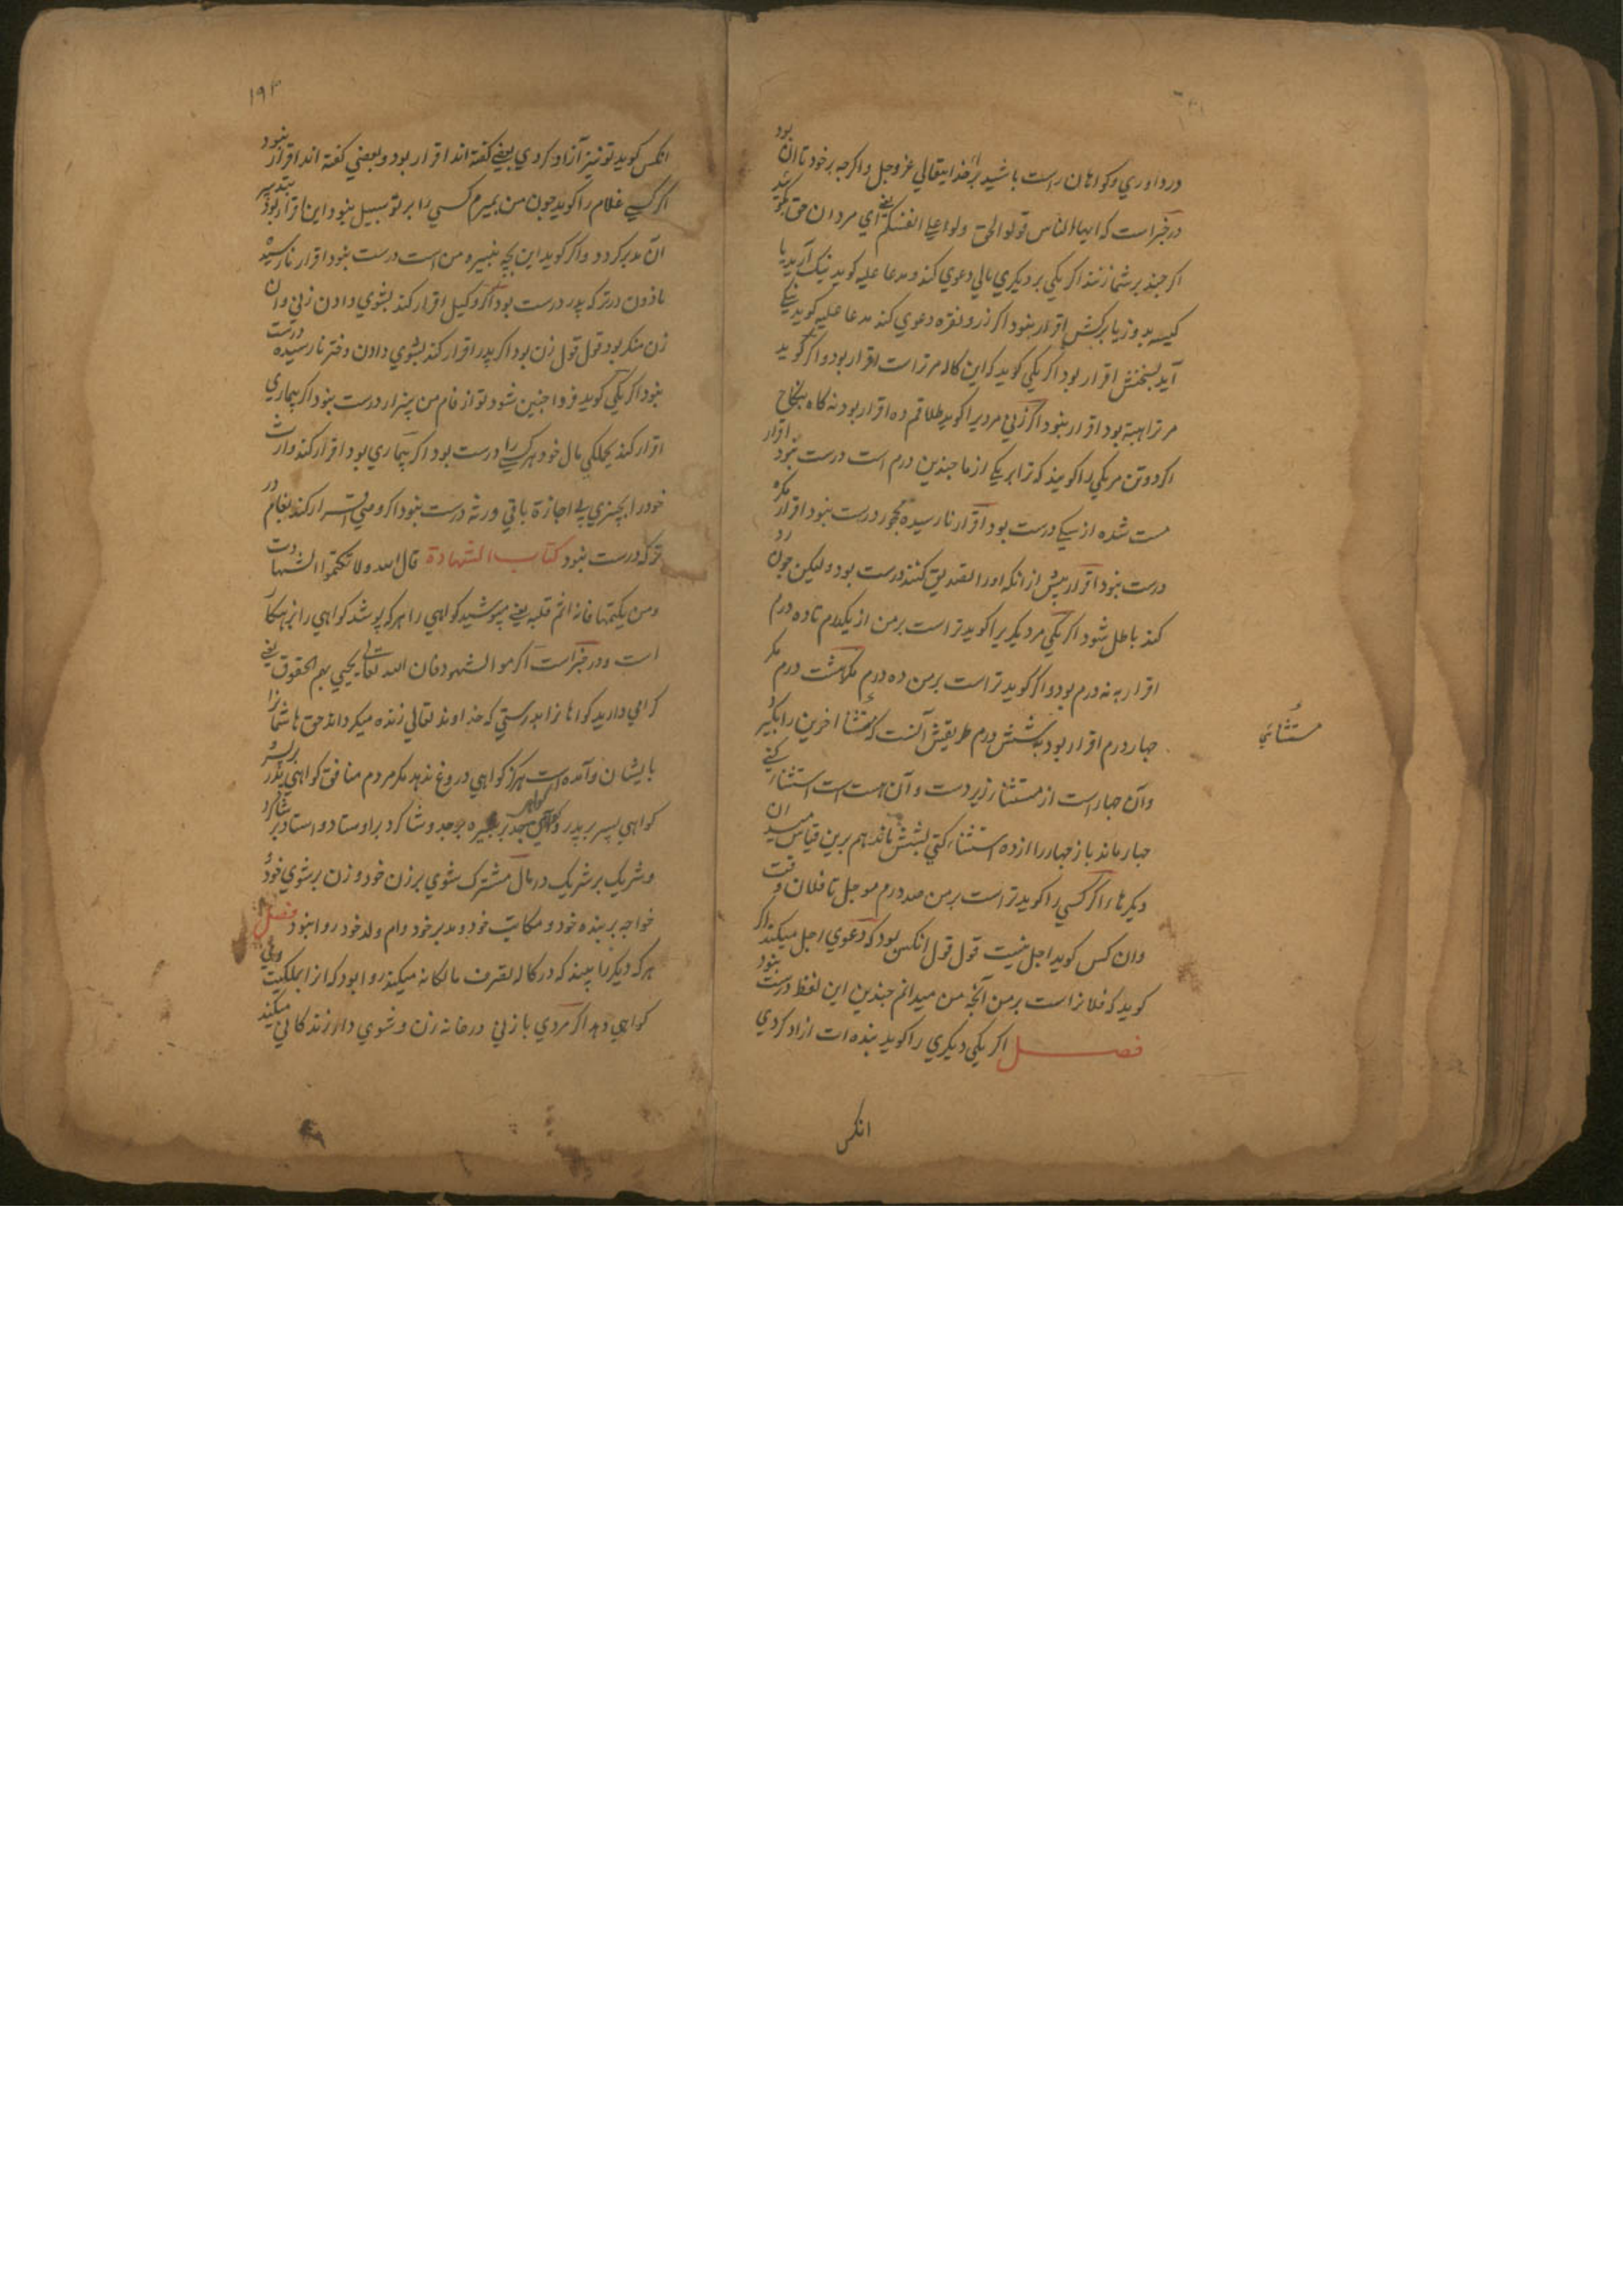 در داوري وكواهان راست باشيد از خدايتعالي عزوجل واكرجه برخود تا ان بود
درخبراست كه ايهاالناس قولوالحق ولوا علي انفسكم يعني اي مردان حق كوئيد
اكر جند برشما زنند اكر يكي بر ديكري مالي دعوي كند ومدعا عليه كويد نيك آريد يا
كيسه بدوز يا بركش اقرار نبود اكر زر ونقره دعوي كند مدعا عليه كويد نيكي
آيد بسختش اقرار بود اكر يكي كويد كه اين كاله مرتراست اقرار بود واكر كويد
مر ترا هبة بود اقرار نبود اكر زني مرديرا كويد طلاقم ده اقرار بود نه كاه بنكاح
اكر دوتن مر يكي را كويند كه ترا بر يكي از ما جندين درم است درست نبود اقرار
مست شده از سيكي درست بود اقرار نارسيده محجور درست نبود اقرار مكره
درست نبود اقرار بيش از انكه اورا تصديق كنند درست بود وليكن جون رد
كند باطل شود اكر يكي مر ديكريرا كويد تراست برمن از يكدرم تا ده درم
اقرار به نه درم بود واكر كويد تراست برمن ده درم مكر هشت درم مكر
جهار درم اقرار بود بشش درم طريقش آنست كه مستثنا اخرين را بكيرد
مستثنائي
وآن جهار است از مستثنا زبر دست وآن هست است استثنا كني
جهار ماند باز جهار را از ده استثناء كني شش ماند هم برين قياس ميدان
ديكرها را اكر كسي را كويد تراست برمن صد درم موجل تا فلان وقت
وان كس كويد اجل نيست قول قول انكس بود كه دعوي اجل ميكند اكر
كويد كه فلانراست برمن آنجه من ميدانم جندين اين لفظ درست نبود
فصل اكر يكي ديكري را كويد بنده ات ازاد كردي
انكس
١٩٣
انكس كويد تو نيز آزاد كردي بعضي كفته اند اقرار بود وبعضي كفته اند اقرار نبود
اكر كسي غلام را كويد جون من بميرم كسي را بر تو سبيل نبود اين اقرار بود بتدبير
آن مدبر كردد واكر كويد اين بجه نبيره من است درست نبود اقرار نارسيده
ماذون در تركه پدر درست بود اكر وكيل اقرار كند بشوي دادن زني وان
زن منكر بود قول قول زن بود اكر پدر اقرار كند بشوي دادن دختر نارسيده درست
نبود اكر يكي كويد فردا جنين شود تو از فام من بيزار درست نبود اكر بيماري
اقرار كند بجملكي مال خود هر كسي را درست بود اكر بيماري بود اقرار كند وارث
خود را بچيزي بي اجازة باقي ورثه درست نبود اكر وصي اقرار كند بفام در
تركه درست نبود كتاب الشهادة قال الله ولا تكتموا الشهادت
ومن يكتمها فانه اثم قلبه يعني مپوشيد كواهي را هر كه پوشد كواهي را بزهكار
است ودر خبراست اكرموا الشهود فان الله تعالي يحيي بهم الحقوق يعني
كرامي داريد كواهانرا بدرستي كه خداوند تعالي زنده ميكرداند حق ها شمارا
بايشان وآمده است هركز كواهي دروغ ندهد مكر مردم منافق كواهي پدر بر پسر
كواهي پسر بر پدر وكواهي جد بر نبيره بر جد وشاكرد بر اوستاد واستاد بر شاكرد
وشريك بر شريك در مال مشترك شوي بر زن خود وزن برشوي خود
خواجه بر بنده خود ومكاتب خود ومدبر خود وام ولد خود روا نبود فصل
هركه ديكر را بيند كه در كاله تصرف مالكانه ميكند روا بود كه از ملكيت وي
كواهي دهد اكر مردي با زني در خانه زن وشوي وار زندكاني ميكند